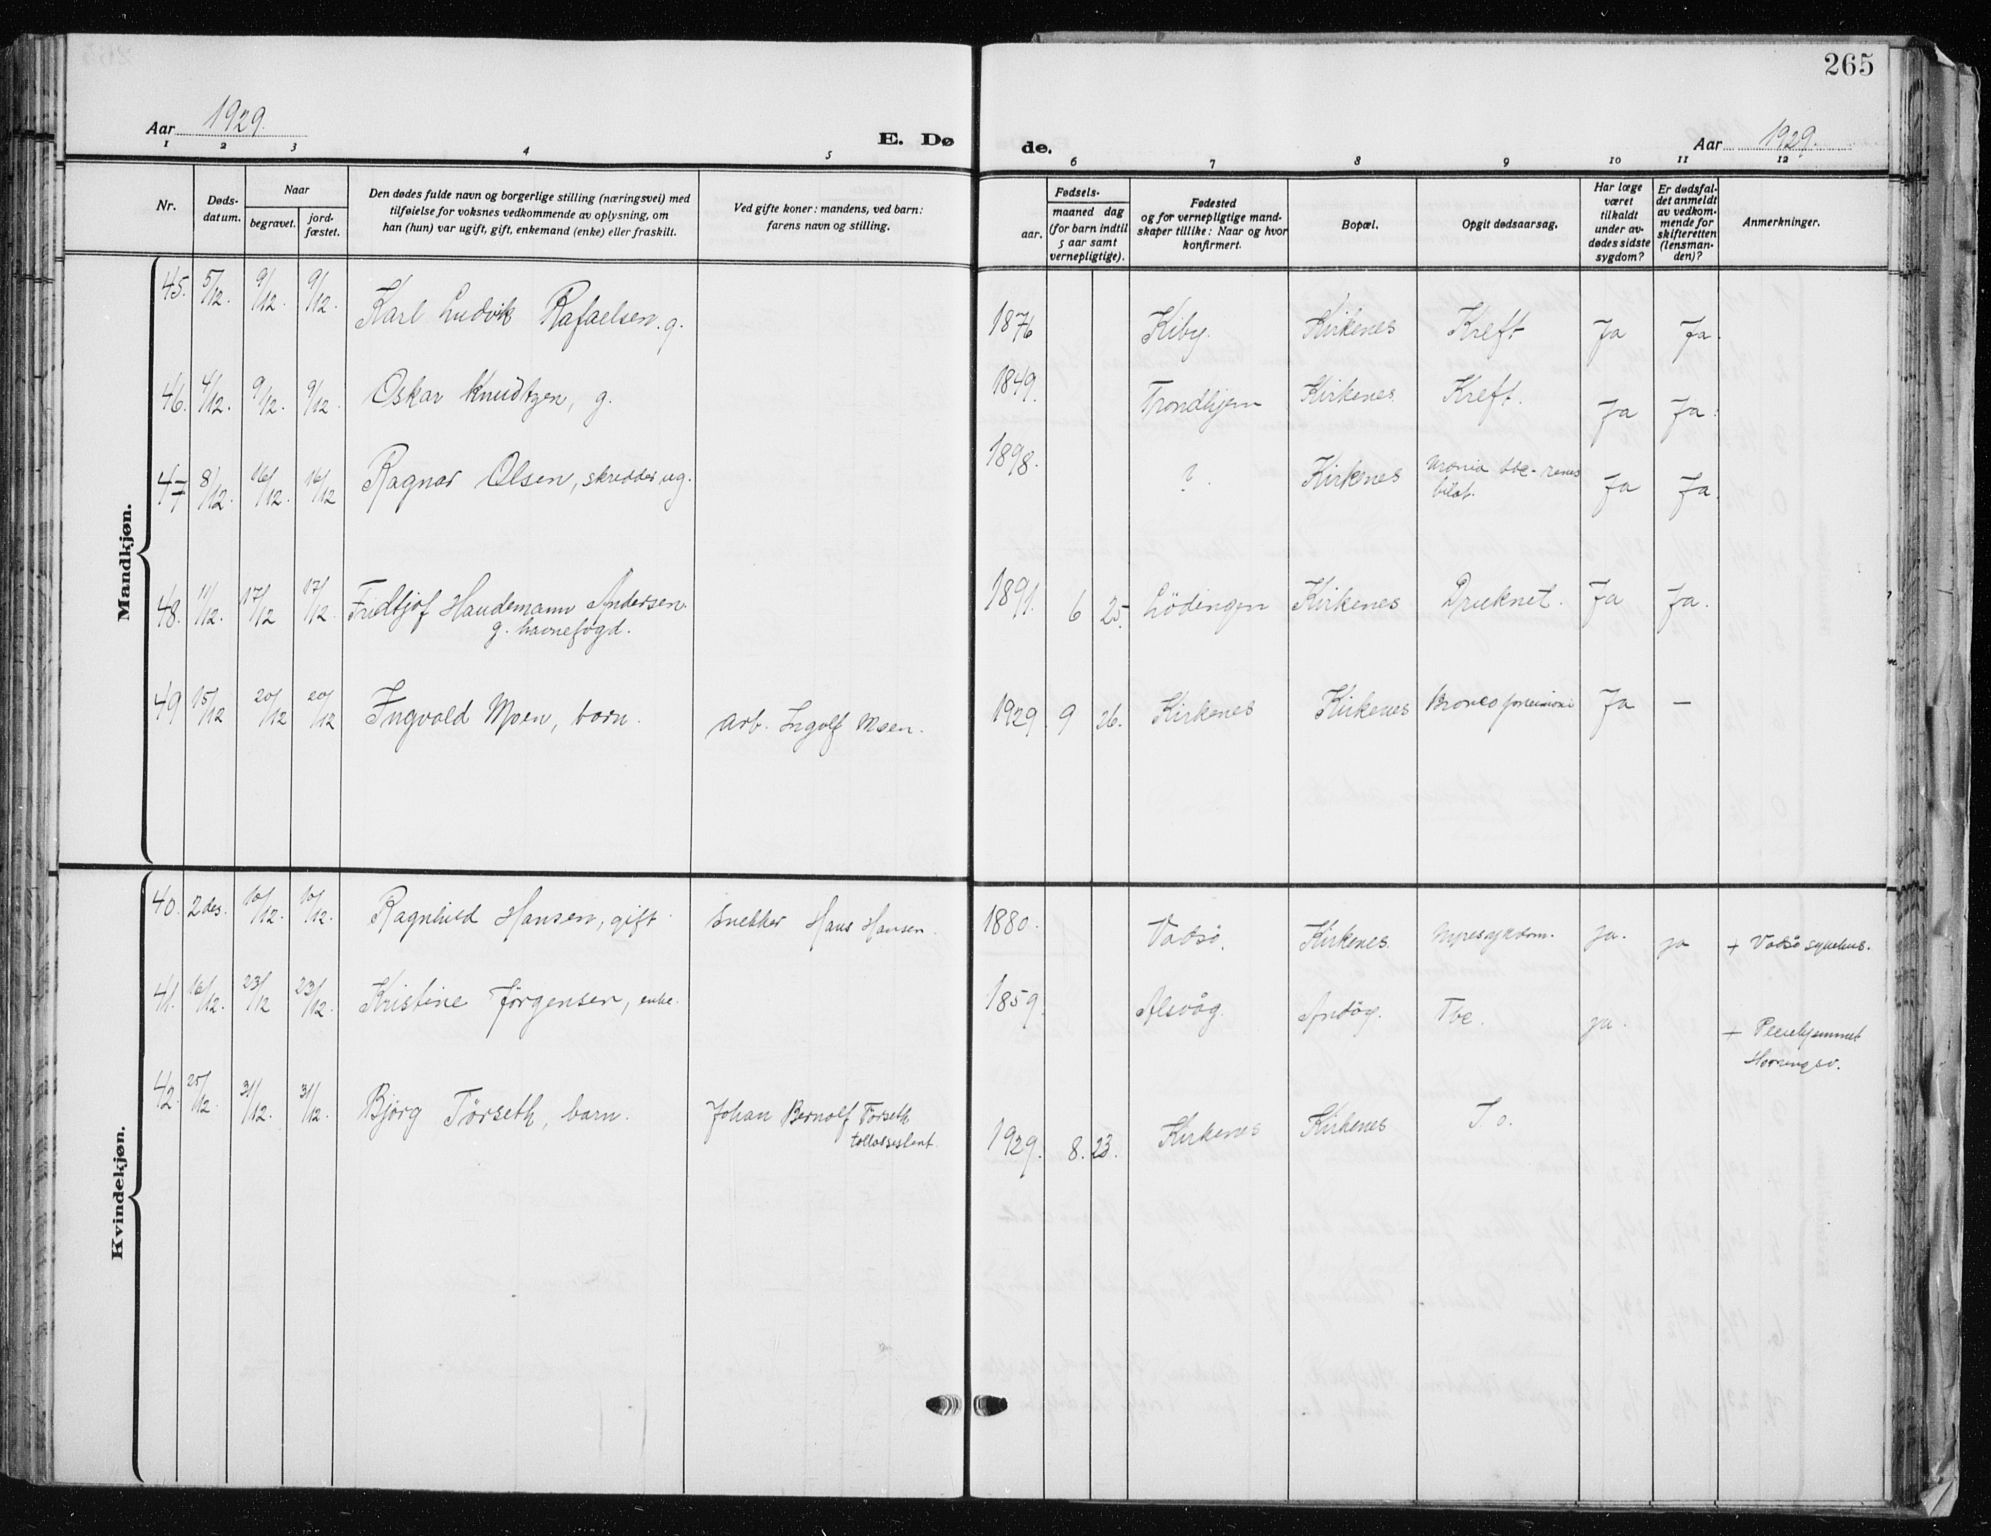 265
Aar 1929.
E. Dø
de.
Aar 1929.
1 2 3 4 5 6 7 8 9 10 11 12
Nr.
Døds-
datum.
Naar
begravet.
jord-
fæstet.
Den dødes fulde navn og borgerlige stilling (næringsvei) med
tilføielse for voksnes vedkommende av oplysning, om
han (hun) var ugift, gift, enkemand (enke) eller fraskilt.
Ved gifte koner: mandens, ved barn:
farens navn og stilling.
Fødsels-
aar.
maaned dag
(for barn indtil
5 aar samt
vernepligtige).
Fødested
og for vernepligtige mand-
skaper tillike: Naar og hvor
konfirmert.
Bopæl.
Opgit dødsaarsag.
Har læge
været
tilkaldt
under av-
dødes sidste
sygdom?
Er dødsfal-
det anmeldt
av vedkom-
mende for
skifteretten
(lensman-
den)?
Anmerkninger.
Mandkjøn.
45. 5/12. 9/12. 9/12. Karl Ludvik Rafaelsen. g. 1876 Kiby. Kirkenes Kreft Ja Ja.
46. 4/12. 9/12. 9/12. Oskar Knudtzen, g. 1849. Trondhjem Kirkenes Kreft. Ja Ja.
47 8/12. 16/12. 16/12 Ragnar Olsen, skredder, ug. 1898. ?. Kirkenes Uræmia tbc. renes
bilat. Ja Ja.
48. 11/12. 17/12 17/12. Fridtjof Andersen.
g. havnefogd. 1891. 6 25. Lödingen Kirkenes Druknet. Ja Ja.
49 15/12 20/12 20/12 Ingvald Moen, barn. arb. Ingolf Moen. 1929. 9 26. Kirkenes Kirkenes Ja —
Kvindekjøn.
40. 2 des. 10/12. 10/12. Ragnhild Hansen, gift. snekker Hans Hansen. 1880. Vadsö. Kirkenes. Nyresykdom. ja. ja + Vadsö sykehus.
41. 16/12. 23/12 23/12. Kristine Jörgensen, enke. 1859. Alsvåg. Andöy. Tbc. ja. + Pleiehjemmet
Honningsv.
42. 25/12. 31/12. 31/12. Bjorg Törseth, barn. Johan Bernolf Törseth
tollassistent. 1929. 8. 23. Kirkenes Kirkenes